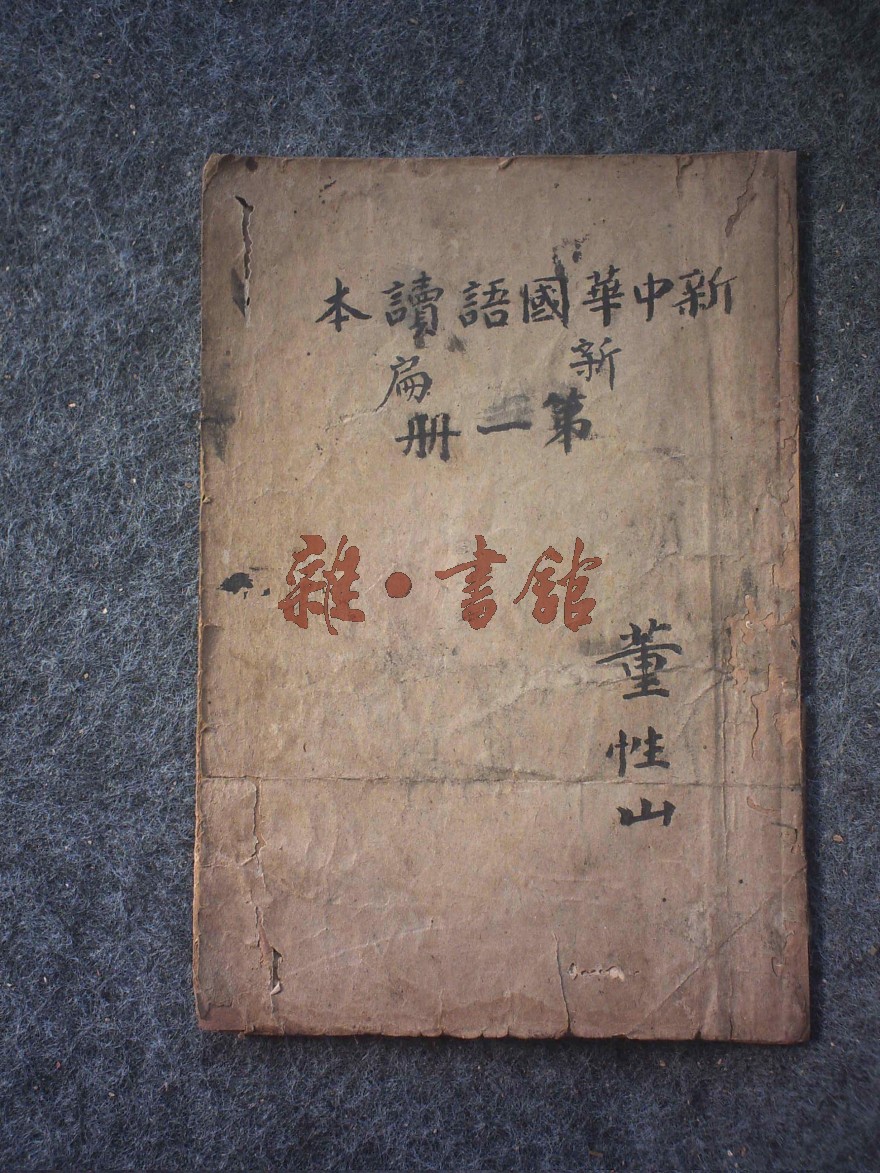 新中華國語讀本
新扁
第一册
雜·書館
董性山